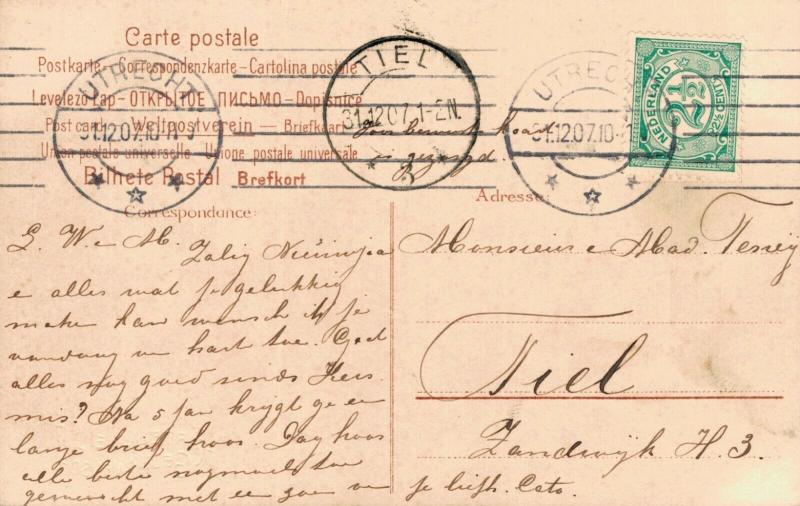 Carte postale
Postkarte — Correspondenzkarte — Cartolina postale
Levelező-Lap — ОТКРЫТОЕ ПИСЬМО — Dopisnice
Post card — Weltpostverein — Briefkaart
Union postale universelle — Unione postale universale
Bilhete Postal Brefkort
UTRECHT
31.12.07.
TIEL
31.12 07. 1-2N.
UTRECHT
31.12.07.10
NEDERLAND
2½
2½ CENT
kaart
is gezegd.
Correspondance:
Adresse:
L. W. e M. Zalig Nieuwjaa
e alles wat je gelukkig
maken kan wensch ik je
vandaag van hart toe. Gaat
alles nog goed sinds Kers
mis? Na 5 Jan krijgt ge een
lange brief hoor. Dag hoor
alle beste nogmaals toe
gewenscht met een zoen v
Monsieur e Mad.
Tiel
Zandwijk H. 3.
je liefh. Cato.